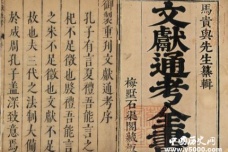 馬貴與先生纂輯
文獻通考全書
梅墅石渠閣
御製重刊文獻通考序
孔子有言夏禮吾能言之
杞不足徵也殷禮吾能言
之宋不足徵也文獻不足
故也夫三代之法制大備
於成周孔子蓋深致意焉